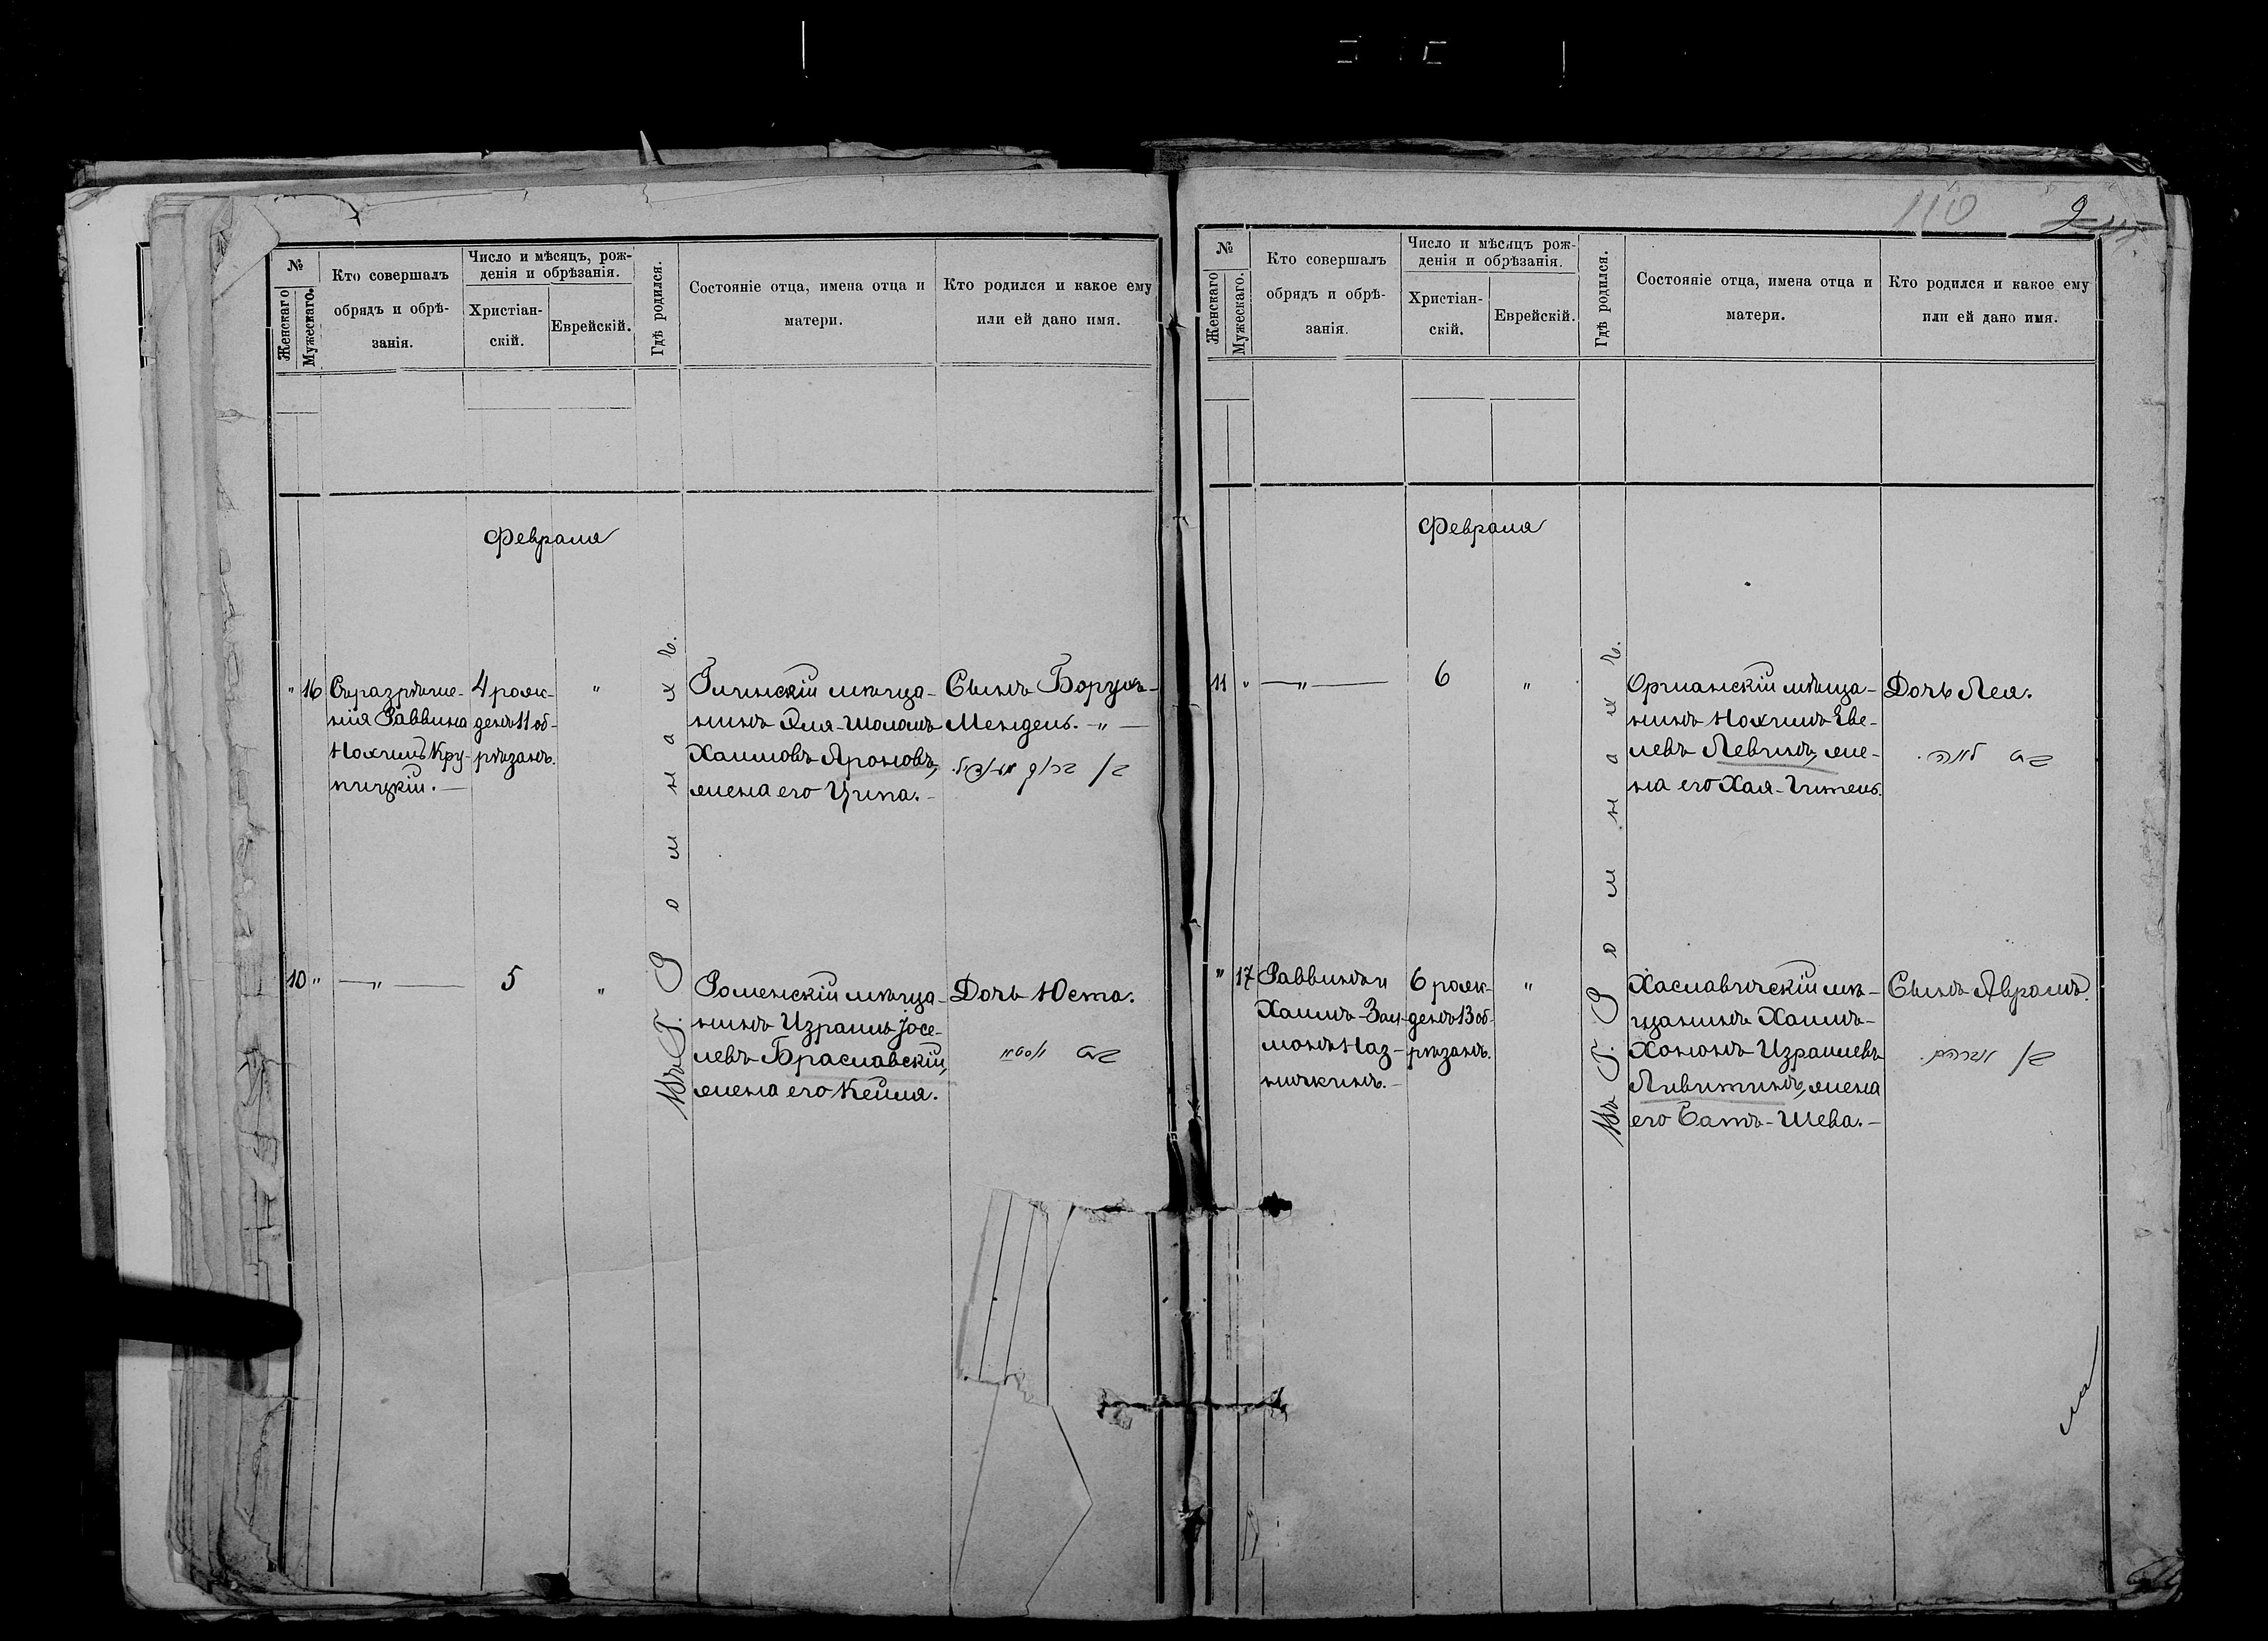 110
9
№
Женскаго
Мужескаго.
Кто совершалъ
обрядъ и обрѣ-
занія.
Число и мѣсяцъ, рож-
денія и обрѣзанія.
Христіан-
скій.
Еврейскій.
Гдѣ родился.
Состояніе отца, имена отца и
матери.
Кто родился и какое ему
или ей дано имя.
Февраля
" 16
Съ разрѣше-
нія Раввина
Нохимъ Кру-
пицкій.
4 рож-
денъ 11 об-
рѣзанъ.
"
Въ Г. Ромнахъ.
Глинскій мѣща-
нинъ Эля-Шоломъ
Хаимовъ Ароновъ,
жена его Ципа.
Сынъ Борухъ-
Мендель. "
10 "
"
5
"
Роменскій мѣща-
нинъ Израиль Іосе-
левъ Браславскій,
жена его Кейля.
Дочь Юста.
№
Женскаго
Мужескаго.
Кто совершалъ
обрядъ и обрѣ-
занія.
Число и мѣсяцъ рож-
денія и обрѣзанія.
Христіан-
скій.
Еврейскій.
Гдѣ родился.
Состояніе отца, имена отца и
матери.
Кто родился и какое ему
или ей дано имя.
Февраля
11 "
"
6
"
Въ Г. Ромнахъ.
Оршанскій мѣща-
нинъ Нохимъ Еве-
левъ Левинъ, же-
на его Хая-Гитель.
Дочь Лея.
בת לאה.
" 17
Раввинъ и
Хаимъ-Зал-
монъ Наз-
ничкинъ.
6 рож-
денъ 13 об-
рѣзанъ.
"
Хаславичскій мѣ-
щанинъ Хаимъ-
Хононъ Израилевъ
Ливитинъ, жена
его Батъ-Шева.
Сынъ Авромъ.
ב/ אברהם.